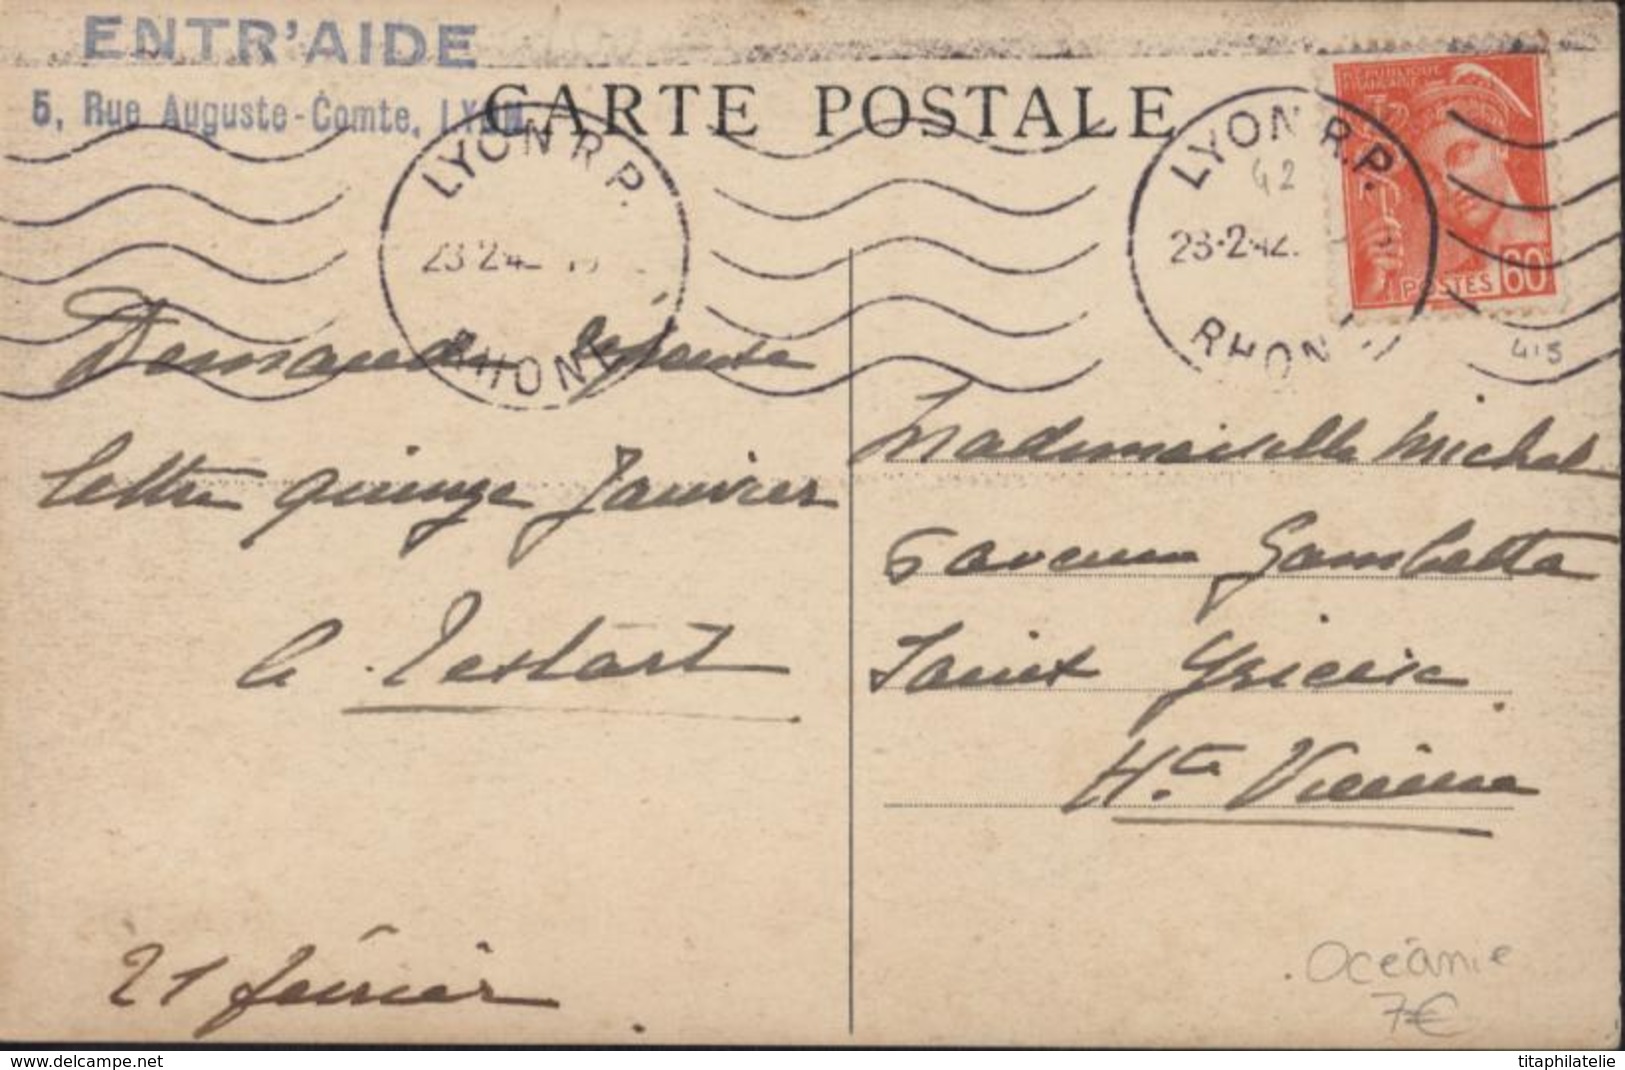 ENTR'AIDE
5, Rue Auguste-Comte, LYON
CARTE POSTALE
LYON R.P.
23-2-42
RHONE
LYON R.P.
42
23-2-42
RHONE
REPUBLIQUE
FRANCAISE
POSTES 60
415
Demande réponse
lettre quinze Janvier
21 février
Mademoiselle Michel
6 avenue Gambetta
Saint Yrieix
Hte Vienne
Océanie
7€
www.delcampe.net
titaphilatelie